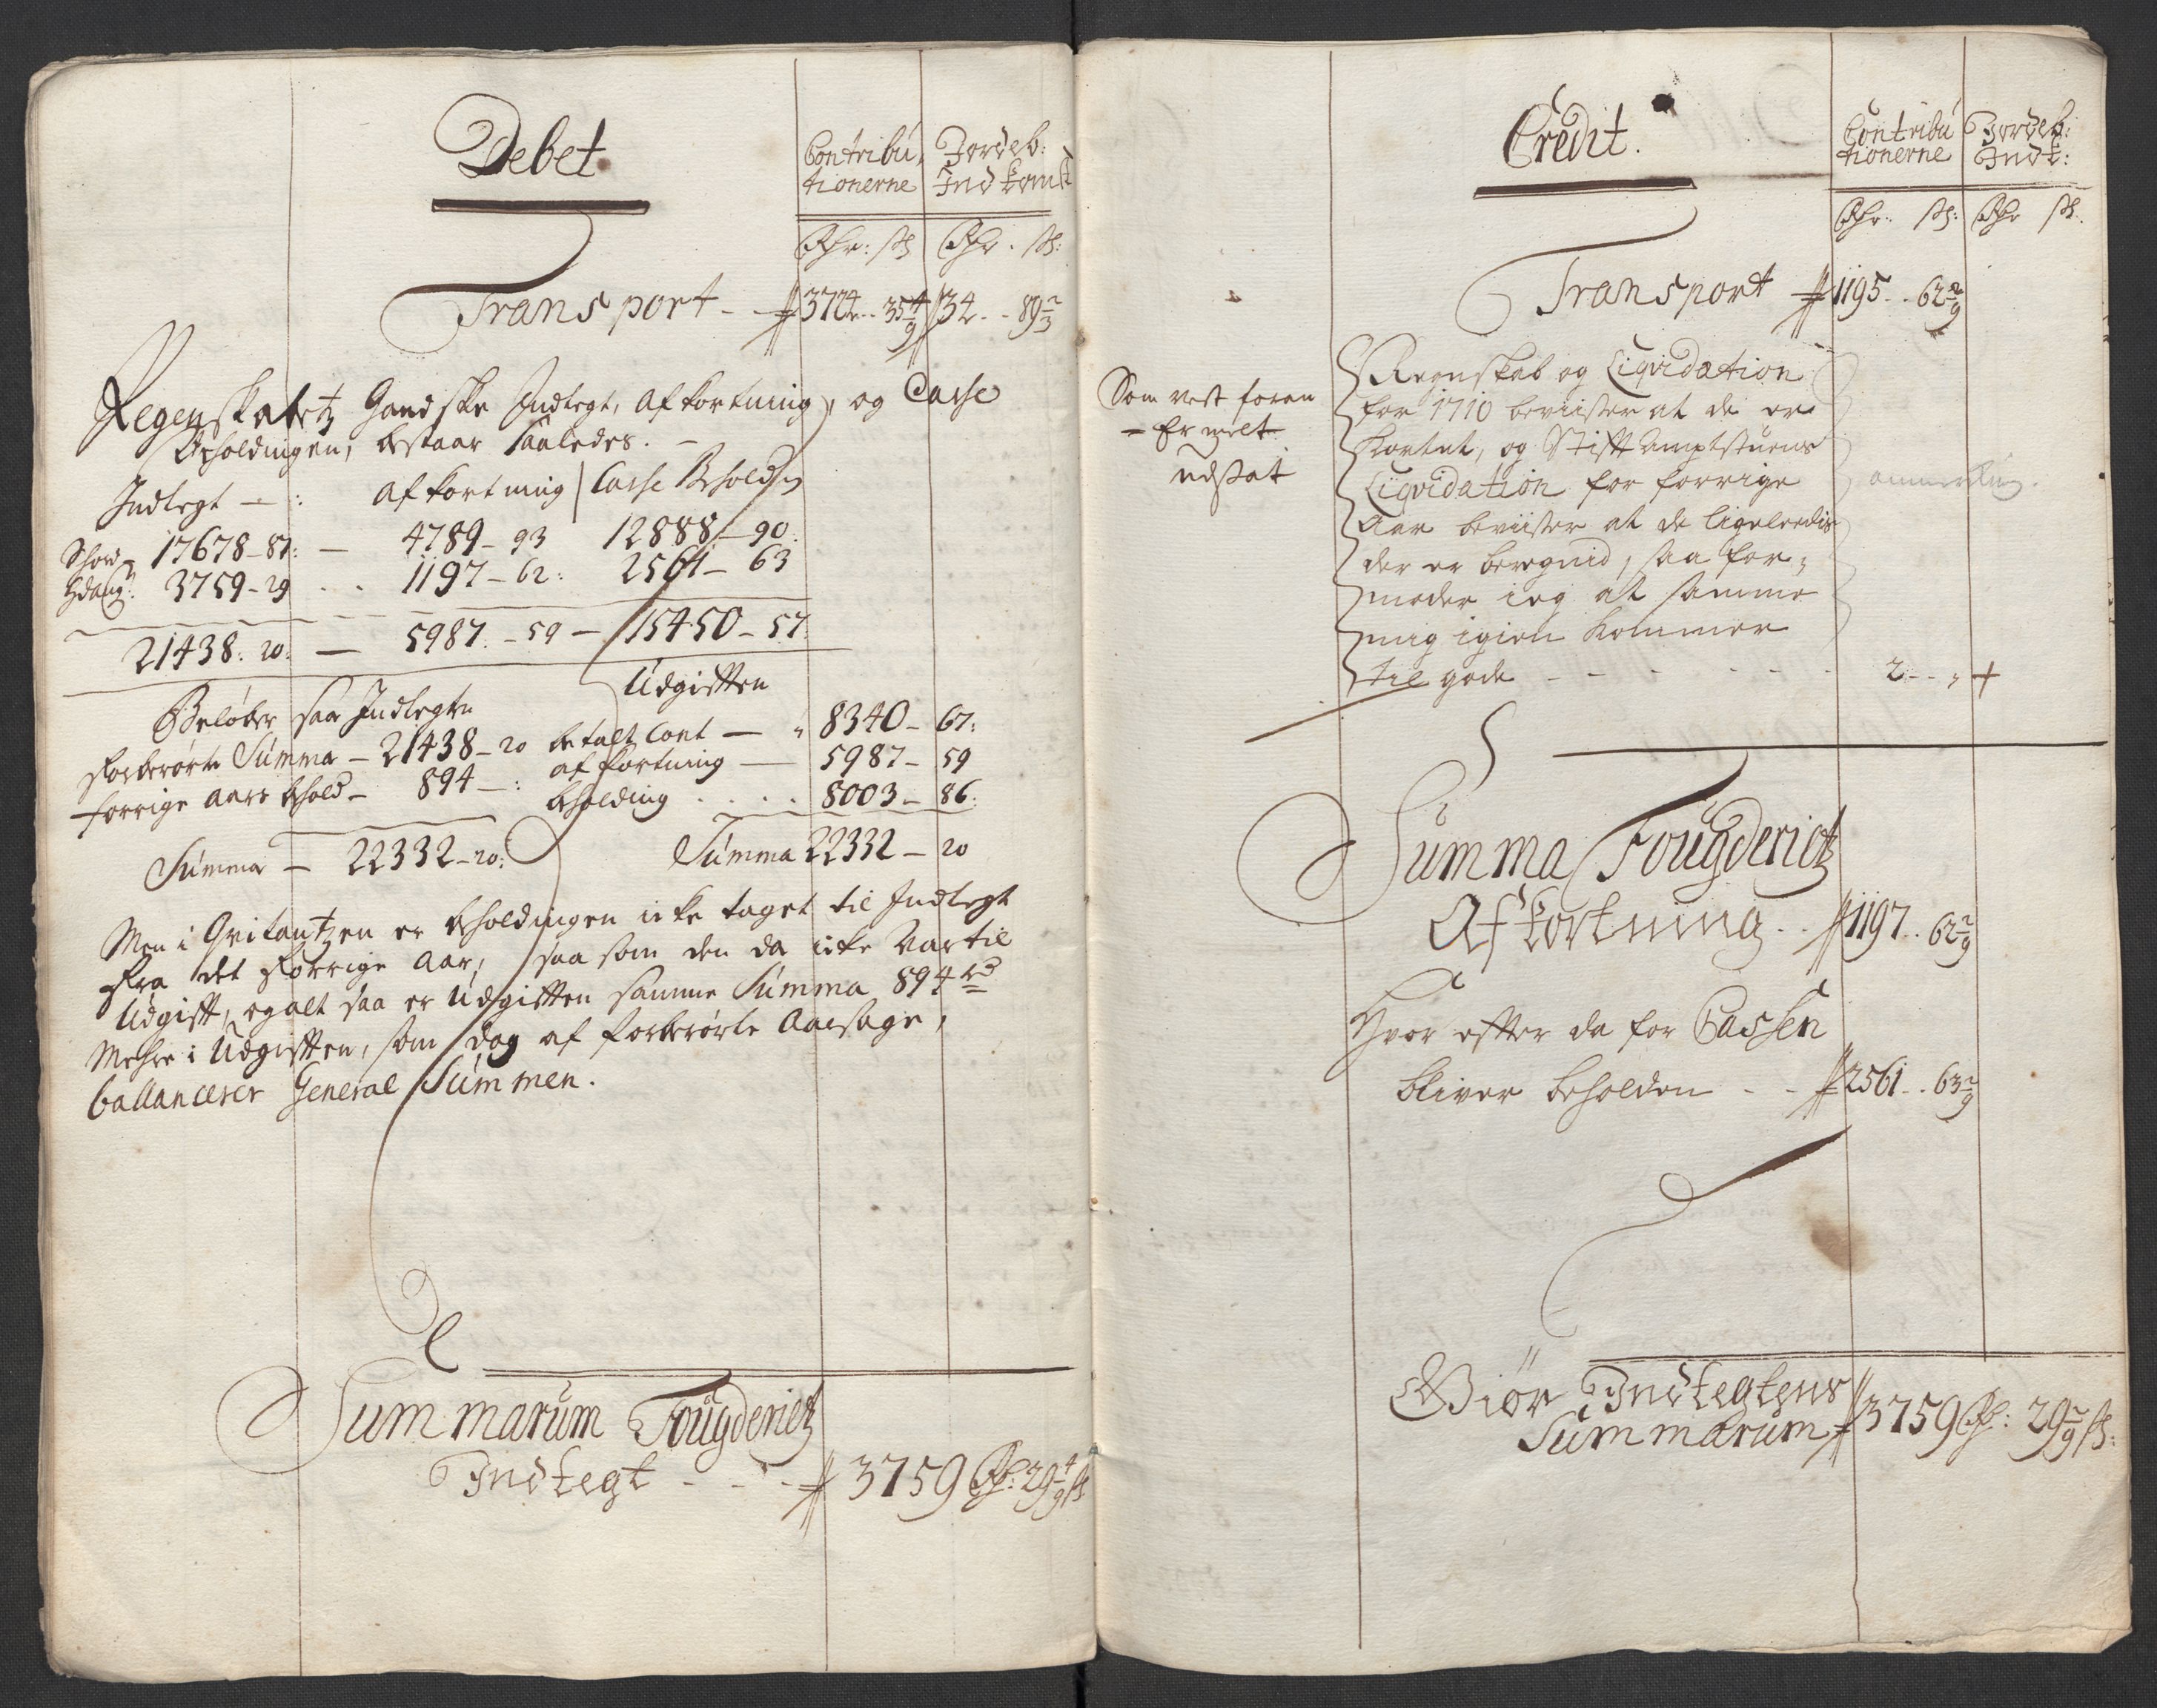 Debet
Contribu,
tionerne
Jordeb:
Indkomst
Rdr: ſß
Rdr. ſß:
Transport - - 3724.. 35 4/9 34.. 89 2/3
Regenskabetz Gandske Indtegt, afkortning, og Casse
Beholdingen, bestaar saaledes. -
Indtegt - : afkortning Casse Beholdn
17678 - 87: - 4789 - 93 12888 - 90:
3759 - 29 . . 1197 - 62: 2561 - 63
21438: 20: - 5987. - 59 - 15450 - 57:
Beløber saa Indtegten
Udgifften
forberørte Summa - 21438 - 20 betalt Cont - " 8340 - 67:
forrige aars behold - 894 - : afkortning - 5987 - 59
beholding . . . . 8003 - 86:
Summa - 22332 - 20: Summa 22332 - 20
Men i Qvitantzen er beholdingen icke taget til Indtegt
fra det forrige aar, saasom den da icke var til
Udgifft, og alt saa er Udgifften samme Summa 894 rd
Mehre i Udgifften, som dog af forberørte Aarsage,
ballancerer General Summen.
Summarum Fougderietz
Indtegt - - - 3759 Rd: 29 4/9 ſß
Credit.
Contribu
tionerne
Jordeb:
Indk:
Rdr: ſß:
Rdr ſß.
Transport 1195.. 62 2/9
Som nest foran
- Er melt
udsat
Regnskab og Liqvidation
for 1710 beviiser at de er
kortet, og Stifft Amptstuens
Liqvidation for forrige
Aar beviiser at de ligeledis
der er beregnid, saa for,
moder jeg at samme
mig igien kommer
til gode - - - - - - 2 - - " +
Summa Fougderietz
Afkortning . . 1197.. 62 2/9
Hvor effter da for Cassen
bliver beholden - - 2561.. 63 2/9
Giør Indtegtens
Summarum 3759 Rd: 29 2/9 ſß: